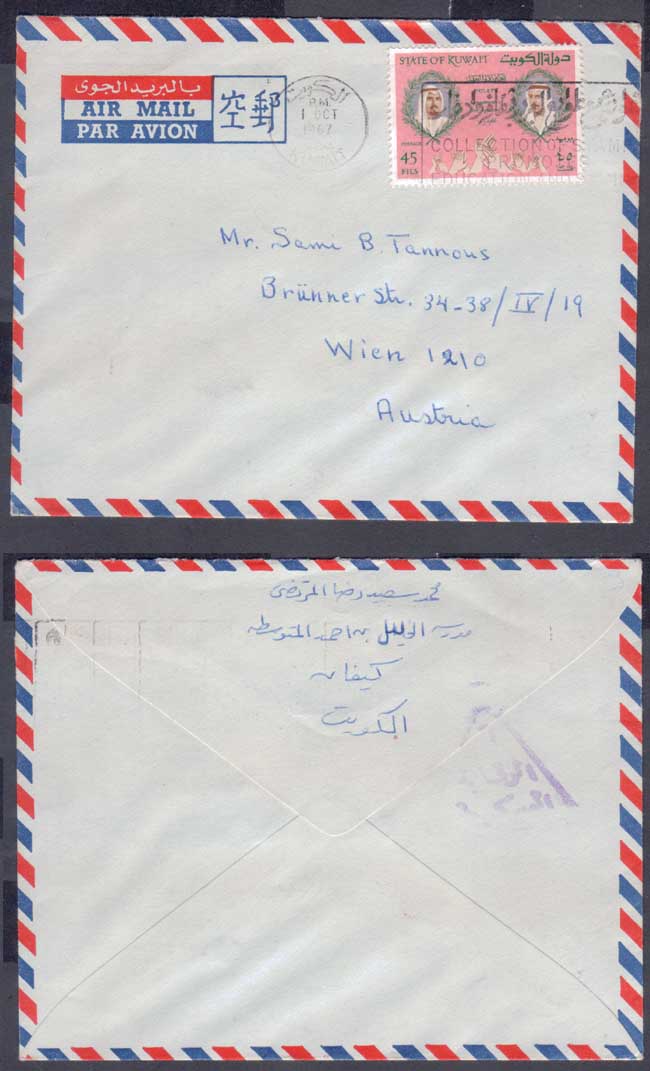 بالبريد الجوى
AIR MAIL
PAR AVION
空郵
الكويت
PM
1 OCT
1967
KUWAIT
STATE OF KUWAIT دولة الكويت
POSTAGE
45
FILS
٤٥
COLLECTION OF STAM
Mr. Sami B. Tannous
Brünner Str. 34-38/IV/19
Wien 1210
Austria
محمد سعيد رضا المرتضى
مدرسة الخليل بن احمد المتوسطة
كيفان
الكويت
الرقابة
العسكرية